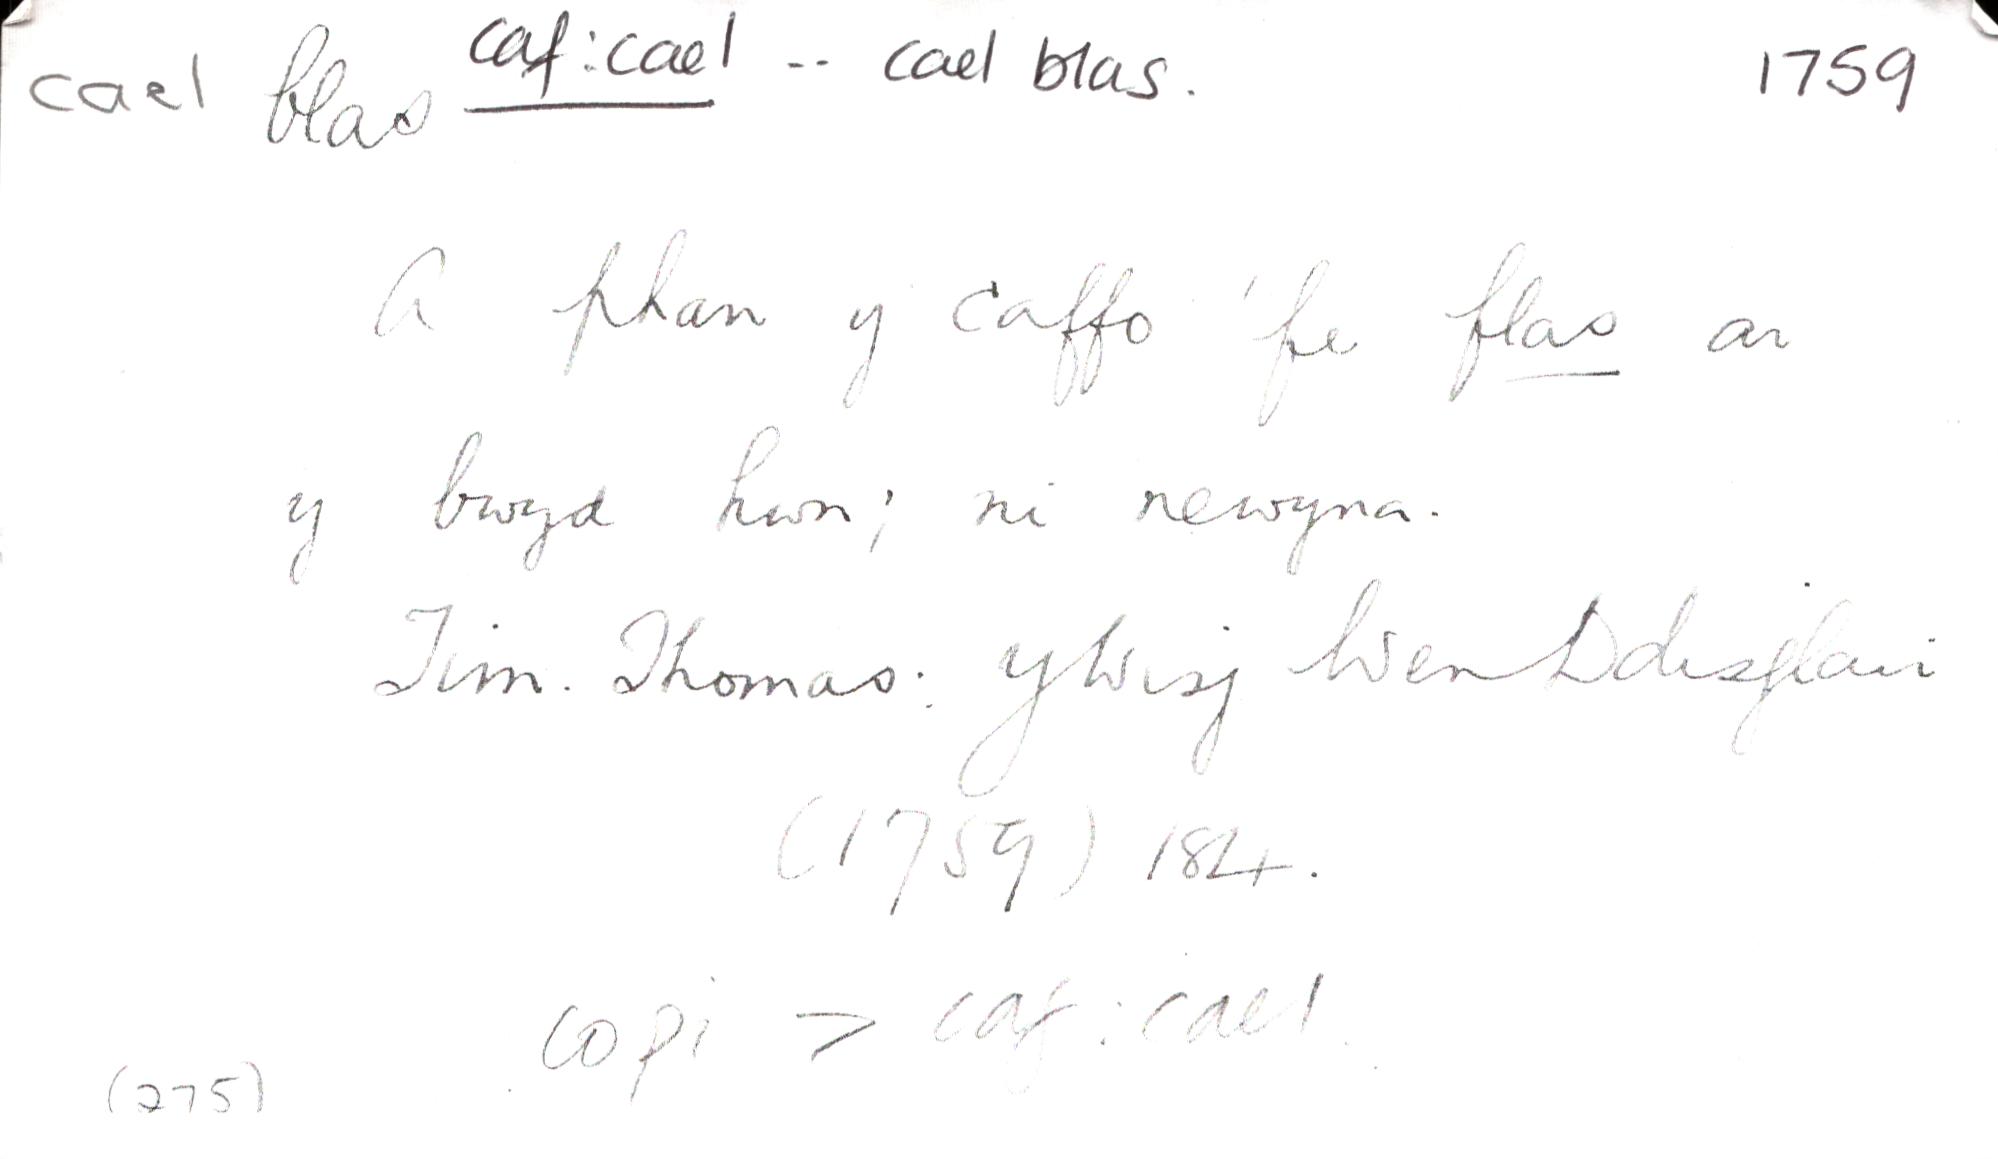 cael blas caf:cael -- cael blas. 1759
A phan y caffo 'fe flas ar
y bwyd hwn; ni newyna.
Tim. Thomas: y Wisg Wen Ddisglair
(1759) 184.
copi > caf:cael
(275)